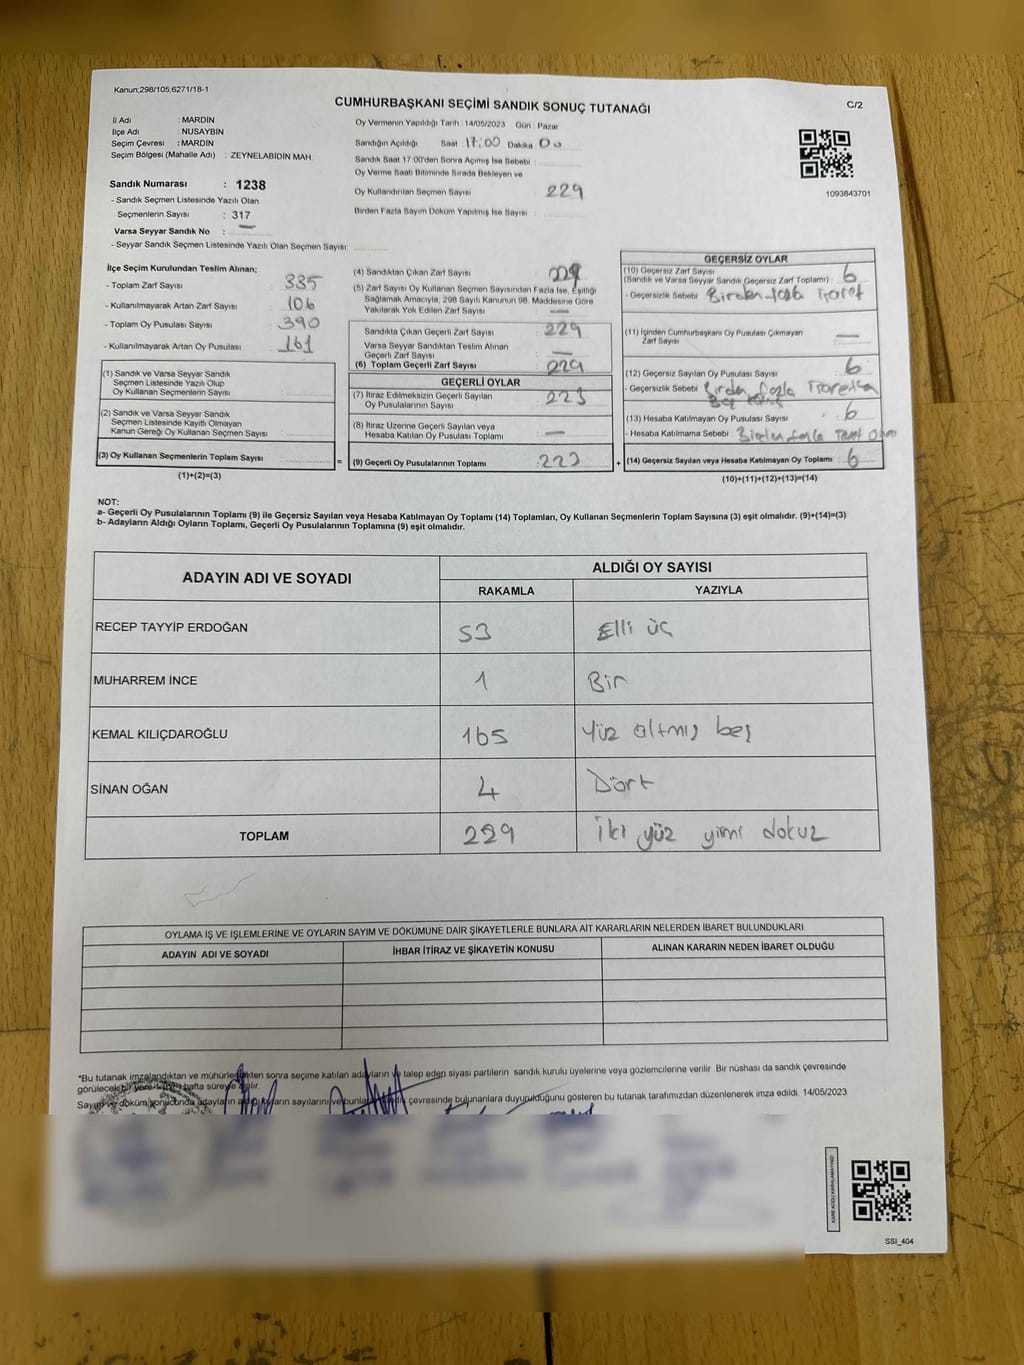 Kanun;298/105,6271/18-1
CUMHURBAŞKANI SEÇİMİ SANDIK SONUÇ TUTANAĞI
C/2
İl Adı : MARDİN
İlçe Adı : NUSAYBİN
Seçim Çevresi : MARDİN
Seçim Bölgesi (Mahalle Adı) : ZEYNELABİDİN MAH
Sandık Numarası : 1238
- Sandık Seçmen Listesinde Yazılı Olan
Seçmenlerin Sayısı : 317
Varsa Seyyar Sandık No : —
- Seyyar Sandık Seçmen Listesinde Yazılı Olan Seçmen Sayısı:
Oy Vermenin Yapıldığı Tarih :14/05/2023 Gün : Pazar
Sandığın Açıldığı Saat :17:00 Dakika 00
Sandık Saat 17.00'den Sonra Açımış İse Sebebi :
Oy Verme Saati Bitiminde Sırada Bekleyen ve
Oy Kullandırılan Seçmen Sayısı 229
Birden Fazla Sayım Döküm Yapılmış İse Sayısı
1093643701
İlçe Seçim Kurulundan Teslim Alınan;
- Toplam Zarf Sayısı : 335
- Kullanılmayarak Artan Zarf Sayısı : 106
- Toplam Oy Pusulası Sayısı : 390
- Kullanılmayarak Artan Oy Pusulası : 161
(1) Sandık ve Varsa Seyyar Sandık
Seçmen Listesinde Yazılı Olup
Oy Kullanan Seçmenlerin Sayısı :
(2) Sandık ve Varsa Seyyar Sandık
Seçmen Listesinde Kayıtlı Olmayan
Kanun Gereği Oy Kullanan Seçmen Sayısı :
(3) Oy Kullanan Seçmenlerin Toplam Sayısı :
(1)+(2)=(3)
(4) Sandıktan Çıkan Zarf Sayısı : 229
(5) Zarf Sayısı Oy Kullanan Seçmen Sayısından Fazla İse, Eşitliği
Sağlamak Amacıyla, 298 Sayılı Kanunun 98. Maddesine Göre
Yakılarak Yok Edilen Zarf Sayısı : —
Sandıkta Çıkan Geçerli Zarf Sayısı : 229
Varsa Seyyar Sandıktan Teslim Alınan
Geçerli Zarf Sayısı : —
(6) Toplam Geçerli Zarf Sayısı : 229
GEÇERLİ OYLAR
(7) İtiraz Edilmeksizin Geçerli Sayılan
Oy Pusulalarının Sayısı : 223
(8) İtiraz Üzerine Geçerli Sayılan veya
Hesaba Katılan Oy Pusulası Toplamı : —
= (9) Geçerli Oy Pusulalarının Toplamı : 223
GEÇERSİZ OYLAR
(10) Geçersiz Zarf Sayısı
(Sandık ve Varsa Seyyar Sandık Geçersiz Zarf Toplamı) : 6
- Geçersizlik Sebebi : Birden fazla
(11) İçinden Cumhurbaşkanı Oy Pusulası Çıkmayan
Zarf Sayısı : —
(12) Geçersiz Sayılan Oy Pusulası Sayısı : 6
- Geçersizlik Sebebi : Birden fazla
(13) Hesaba Katılmayan Oy Pusulası Sayısı : 6
- Hesaba Katılmama Sebebi : Birden fazla
+ (14) Geçersiz Sayılan veya Hesaba Katılmayan Oy Toplamı : 6
(10)+(11)+(12)+(13)=(14)
NOT:
a- Geçerli Oy Pusulalarının Toplamı (9) ile Geçersiz Sayılan veya Hesaba Katılmayan Oy Toplamı (14) Toplamları, Oy Kullanan Seçmenlerin Toplam Sayısına (3) eşit olmalıdır. (9)+(14)=(3)
b- Adayların Aldığı Oyların Toplamı, Geçerli Oy Pusulalarının Toplamına (9) eşit olmalıdır.
ADAYIN ADI VE SOYADI
ALDIĞI OY SAYISI
RAKAMLA YAZIYLA
RECEP TAYYİP ERDOĞAN 53 Elli üç
MUHARREM İNCE 1 Bir
KEMAL KILIÇDAROĞLU 165 Yüz altmış beş
SİNAN OĞAN 4 Dört
TOPLAM 229 İki yüz yirmi dokuz
OYLAMA İŞ VE İŞLEMLERİNE VE OYLARIN SAYIM VE DÖKÜMÜNE DAİR ŞİKAYETLERLE BUNLARA AİT KARARLARIN NELERDEN İBARET BULUNDUKLARI
ADAYIN ADI VE SOYADI İHBAR İTİRAZ VE ŞİKAYETİN KONUSU ALINAN KARARIN NEDEN İBARET OLDUĞU
*Bu tutanak imzalandıktan ve mühürlendikten sonra seçime katılan adayların ve talep eden siyasi partilerin sandık kurulu üyelerine veya gözlemcilerine verilir. Bir nüshası da sandık çevresinde
görülecek bir yere bir hafta süreyle asılır.
Sayım ve döküm sonucunda adayların aldığı oyların sayılarını ve bunların sandık çevresinde bulunanlara duyurulduğunu gösteren bu tutanak tarafımızdan düzenlenerek imza edildi. 14/05/2023
KARE KODU KARALAMAYINIZ!
SSI_404